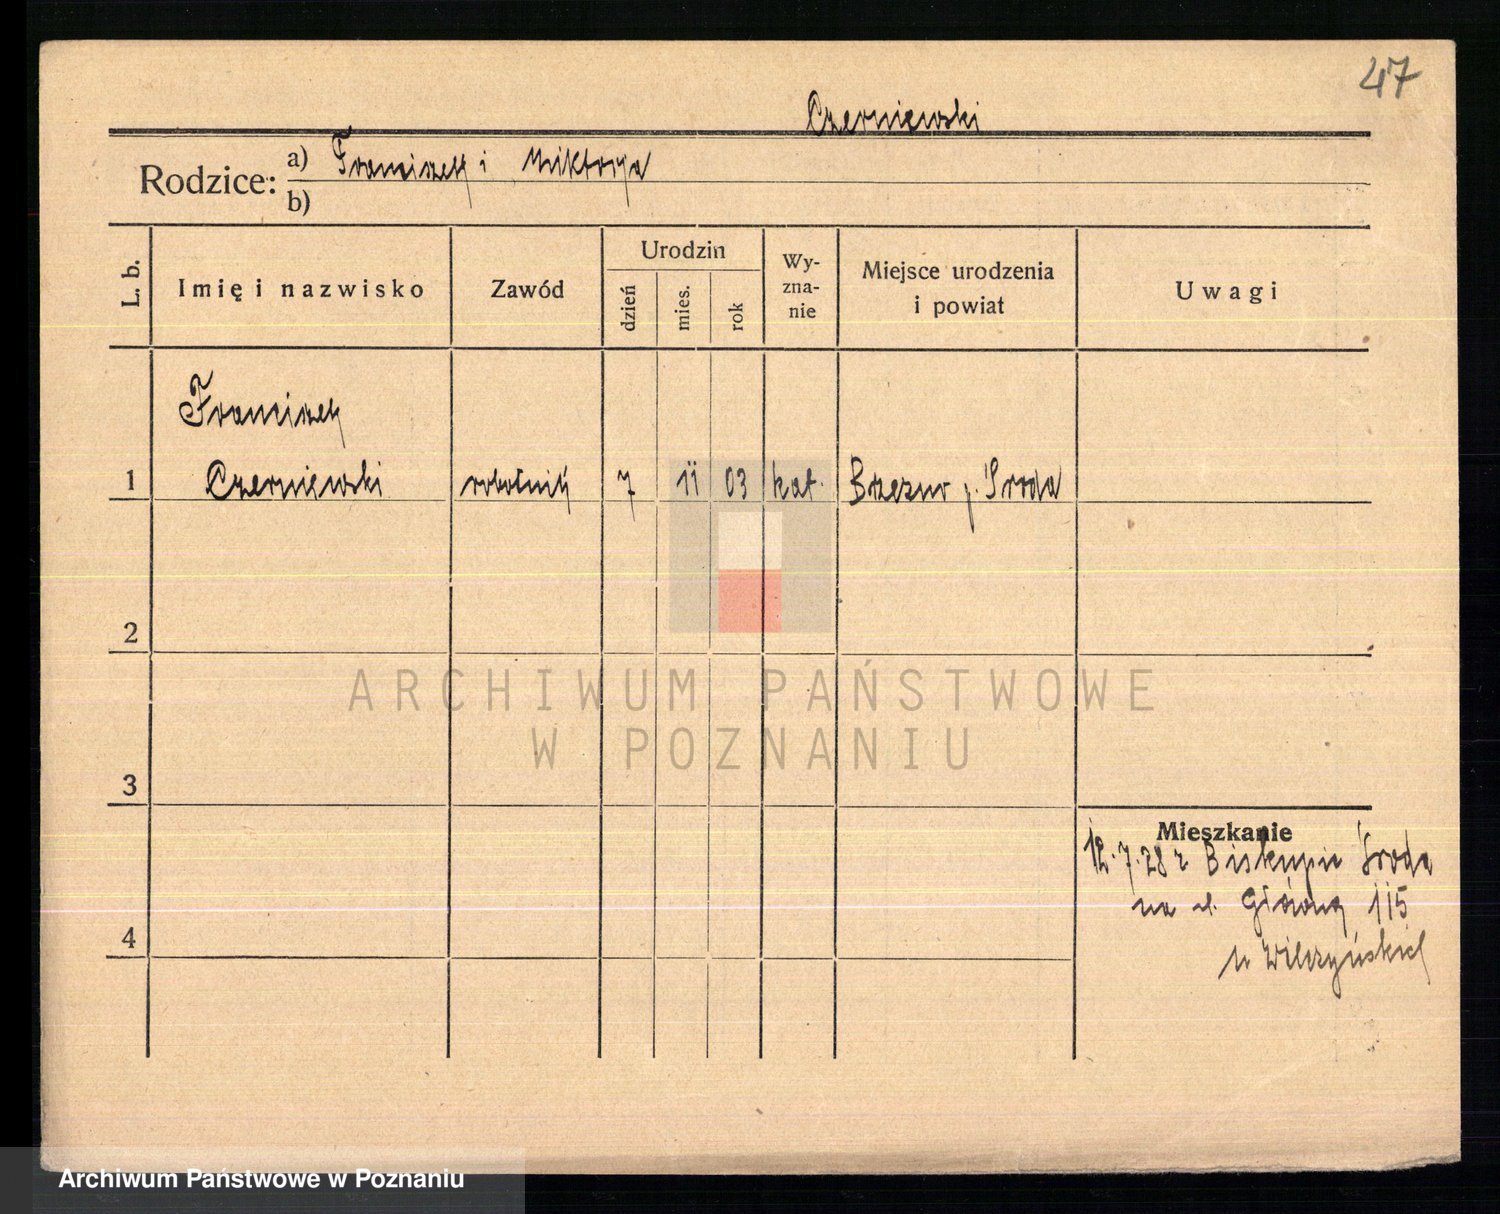 47
Czerniewski
Rodzice: a) Franciszek i Wiktorya
b)
L. b. Imię i nazwisko Zawód Urodzin dzień mies. rok Wy-zna-nie Miejsce urodzenia i powiat Uwagi
Franciszek
1 Czerniewski robotnik 7 11 03 kat. Brzezno p. Środa
2
ARCHIWUM PAŃSTWOWE
W POZNANIU
3
Mieszkanie
12.7.28 z Biskupic Środa
na ul. Główną 115
4
u Wilczyńskich
Archiwum Państwowe w Poznaniu